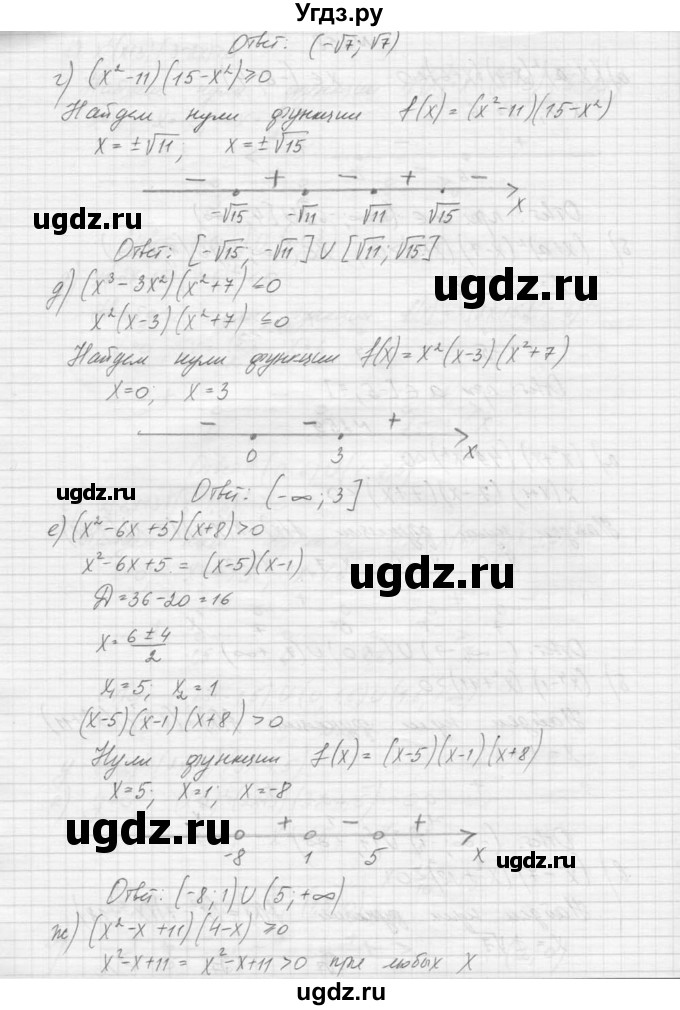 Угдз.ру
Ответ: (-√7; √7)
г) (x²-11)(15-x²)≥0
Найдем нули функции f(x) = (x²-11)(15-x²)
x = ±√11; x = ±√15
- + - + -
-√15 -√11 √11 √15 x
ugdz.ru
Ответ: [-√15; -√11] ∪ [√11; √15]
ugdz.ru
д) (x³-3x²)(x²+7) ≤0
x²(x-3)(x²+7) ≤0
Найдем нули функции f(x) = x²(x-3)(x²+7)
x=0; x=3
- - +
0 3 x
ugdz.ru
Ответ: (-∞; 3]
е) (x²-6x+5)(x+8)>0
x²-6x+5 = (x-5)(x-1)
ugdz.ru
Д=36-20=16
x = (6±4)/2
x₁=5; x₂=1
(x-5)(x-1)(x+8)>0
Нули функции f(x) = (x-5)(x-1)(x+8)
x=5; x=1; x=-8
ugdz.ru
- + - +
-8 1 5 x
ugdz.ru
Ответ: (-8; 1) ∪ (5; +∞)
ж) (x²-x+11)(4-x) ≥0
x²-x+11 = x²-x+11>0 при любых x
ugdz.ru